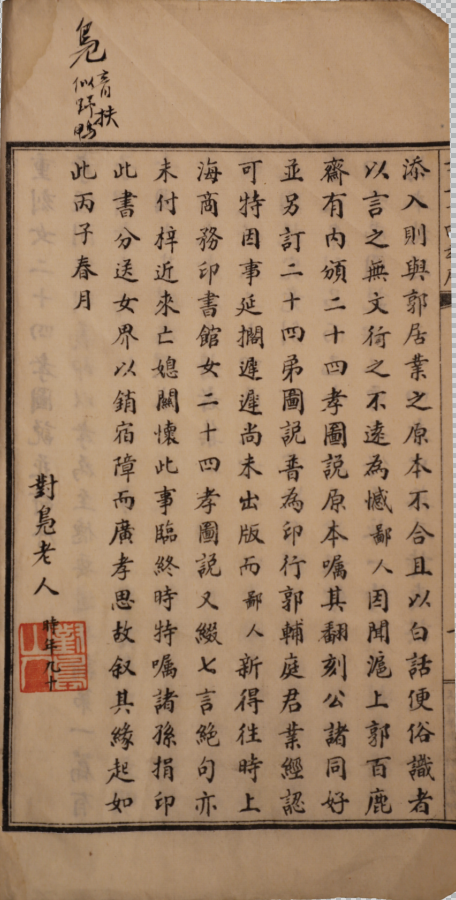 鳧
音扶
似野鴨
添入則與郭居業之原本不合且以白話便俗識者
以言之無文行之不遠為憾鄙人因聞滬上郭百鹿
齋有內頒二十四孝圖說原本囑其翻刻公諸同好
並另訂二十四弟圖說普為印行郭輔庭君業經認
可特因事延擱遲遲尚未出版而鄙人新得往時上
海商務印書館女二十四孝圖說又綴七言絕句亦
未付梓近來亡媳關懷此事臨終時特囑諸孫捐印
此書分送女界以銷宿障而廣孝思故叙其緣起如
此丙子春月
對鳧老人
時年九十